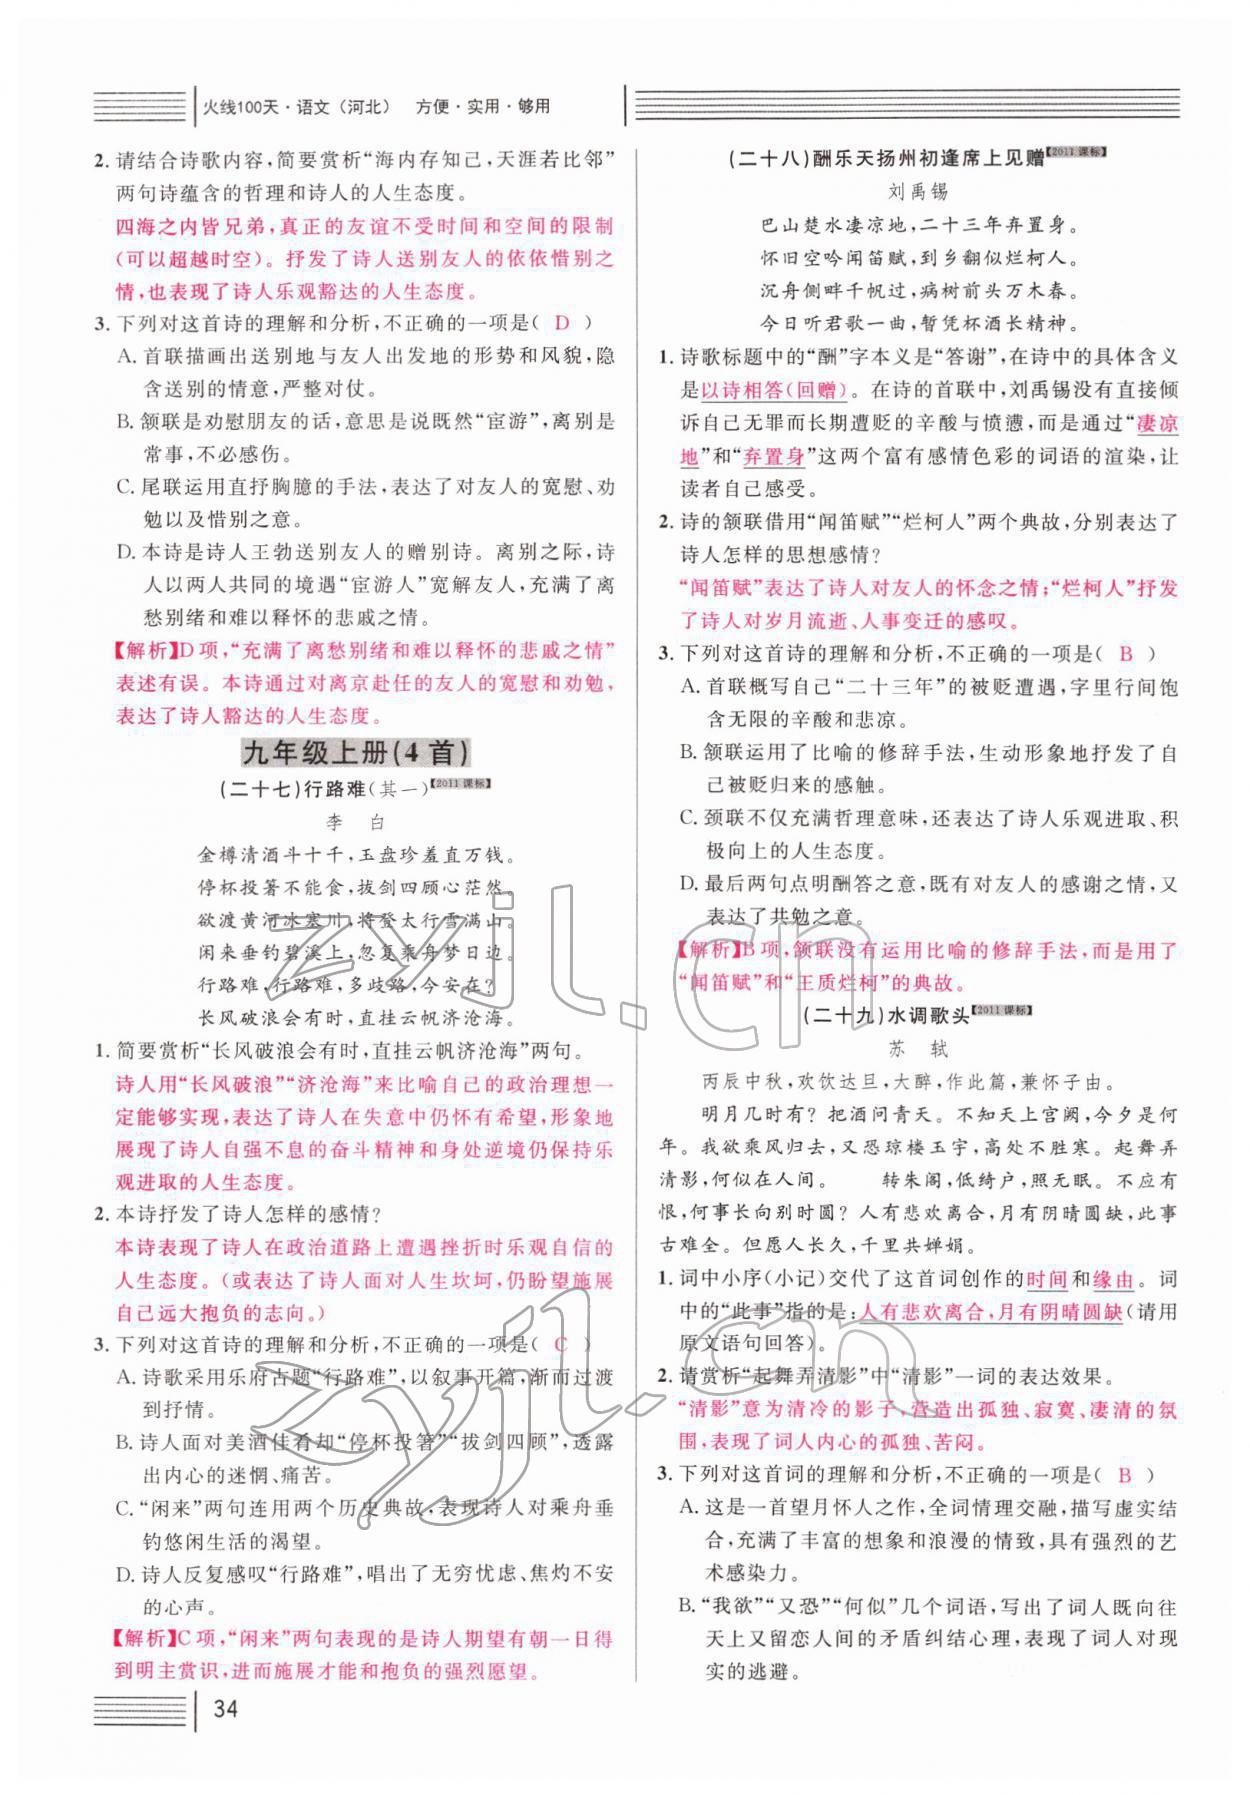 火线100天·语文（河北） 方便·实用·够用
2. 请结合诗歌内容，简要赏析“海内存知己，天涯若比邻”
两句诗蕴含的哲理和诗人的人生态度。
四海之内皆兄弟，真正的友谊不受时间和空间的限制
(可以超越时空)。抒发了诗人送别友人的依依惜别之
情，也表现了诗人乐观豁达的人生态度。
3. 下列对这首诗的理解和分析，不正确的一项是( D )
A. 首联描画出送别地与友人出发地的形势和风貌，隐
含送别的情意，严整对仗。
B. 颔联是劝慰朋友的话，意思是说既然“宦游”，离别是
常事，不必感伤。
C. 尾联运用直抒胸臆的手法，表达了对友人的宽慰、劝
勉以及惜别之意。
D. 本诗是诗人王勃送别友人的赠别诗。离别之际，诗
人以两人共同的境遇“宦游人”宽解友人，充满了离
愁别绪和难以释怀的悲戚之情。
【解析】D项，“充满了离愁别绪和难以释怀的悲戚之情”
表述有误。本诗通过对离京赴任的友人的宽慰和劝勉，
表达了诗人豁达的人生态度。
九年级上册(4首)
(二十七)行路难(其一)【2011课标】
李 白
金樽清酒斗十千，玉盘珍羞直万钱。
停杯投箸不能食，拔剑四顾心茫然。
欲渡黄河冰塞川，将登太行雪满山。
闲来垂钓碧溪上，忽复乘舟梦日边。
行路难，行路难，多歧路，今安在？
长风破浪会有时，直挂云帆济沧海。
1. 简要赏析“长风破浪会有时，直挂云帆济沧海”两句。
诗人用“长风破浪”“济沧海”来比喻自己的政治理想一
定能够实现，表达了诗人在失意中仍怀有希望，形象地
展现了诗人自强不息的奋斗精神和身处逆境仍保持乐
观进取的人生态度。
2. 本诗抒发了诗人怎样的感情？
本诗表现了诗人在政治道路上遭遇挫折时乐观自信的
人生态度。(或表达了诗人面对人生坎坷，仍盼望施展
自己远大抱负的志向。)
3. 下列对这首诗的理解和分析，不正确的一项是( C )
A. 诗歌采用乐府古题“行路难”，以叙事开篇，渐而过渡
到抒情。
B. 诗人面对美酒佳肴却“停杯投箸”“拔剑四顾”，透露
出内心的迷惘、痛苦。
C. “闲来”两句连用两个历史典故，表现诗人对乘舟垂
钓悠闲生活的渴望。
D. 诗人反复感叹“行路难”，唱出了无穷忧虑、焦灼不安
的心声。
【解析】C项，“闲来”两句表现的是诗人期望有朝一日得
到明主赏识，进而施展才能和抱负的强烈愿望。
34
(二十八)酬乐天扬州初逢席上见赠【2011课标】
刘禹锡
巴山楚水凄凉地，二十三年弃置身。
怀旧空吟闻笛赋，到乡翻似烂柯人。
沉舟侧畔千帆过，病树前头万木春。
今日听君歌一曲，暂凭杯酒长精神。
1. 诗歌标题中的“酬”字本义是“答谢”，在诗中的具体含义
是以诗相答(回赠)。在诗的首联中，刘禹锡没有直接倾
诉自己无罪而长期遭贬的辛酸与愤懑，而是通过“凄凉
地”和“弃置身”这两个富有感情色彩的词语的渲染，让
读者自己感受。
2. 诗的颔联借用“闻笛赋”“烂柯人”两个典故，分别表达了
诗人怎样的思想感情？
“闻笛赋”表达了诗人对友人的怀念之情；“烂柯人”抒发
了诗人对岁月流逝、人事变迁的感叹。
3. 下列对这首诗的理解和分析，不正确的一项是( B )
A. 首联概写自己“二十三年”的被贬遭遇，字里行间饱
含无限的辛酸和悲凉。
B. 颔联运用了比喻的修辞手法，生动形象地抒发了自
己被贬归来的感触。
C. 颈联不仅充满哲理意味，还反映了诗人乐观进取、积
极向上的人生态度。
D. 最后两句点明酬答之意，既有对友人的感谢之情，又
表达了共勉之意。
【解析】B项，颔联没有运用比喻的修辞手法，而是用了
“闻笛赋”和“王质烂柯”的典故。
(二十九)水调歌头【2011课标】
苏 轼
丙辰中秋，欢饮达旦，大醉，作此篇，兼怀子由。
明月几时有？把酒问青天。不知天上宫阙，今夕是何
年。我欲乘风归去，又恐琼楼玉宇，高处不胜寒。起舞弄
清影，何似在人间。 转朱阁，低绮户，照无眠。不应有
恨，何事长向别时圆？人有悲欢离合，月有阴晴圆缺，此事
古难全。但愿人长久，千里共婵娟。
1. 词中小序(小记)交代了这首词创作的时间和缘由。词
中的“此事”指的是：人有悲欢离合，月有阴晴圆缺(请用
原文语句回答)。
2. 请赏析“起舞弄清影”中“清影”一词的表达效果。
“清影”意为清冷的影子，营造出孤独、寂寞、凄清的氛
围，表现了词人内心的孤独、苦闷。
3. 下列对这首词的理解和分析，不正确的一项是( B )
A. 这是一首望月怀人之作，全词情理交融，描写虚实结
合，充满了丰富的想象和浪漫的情致，具有强烈的艺
术感染力。
B. “我欲”“又恐”“何似”几个词语，写出了词人既向往
天上又留恋人间的矛盾纠结心理，表现了词人对现
实的逃避。
zyjl.cn
zyjl.cn